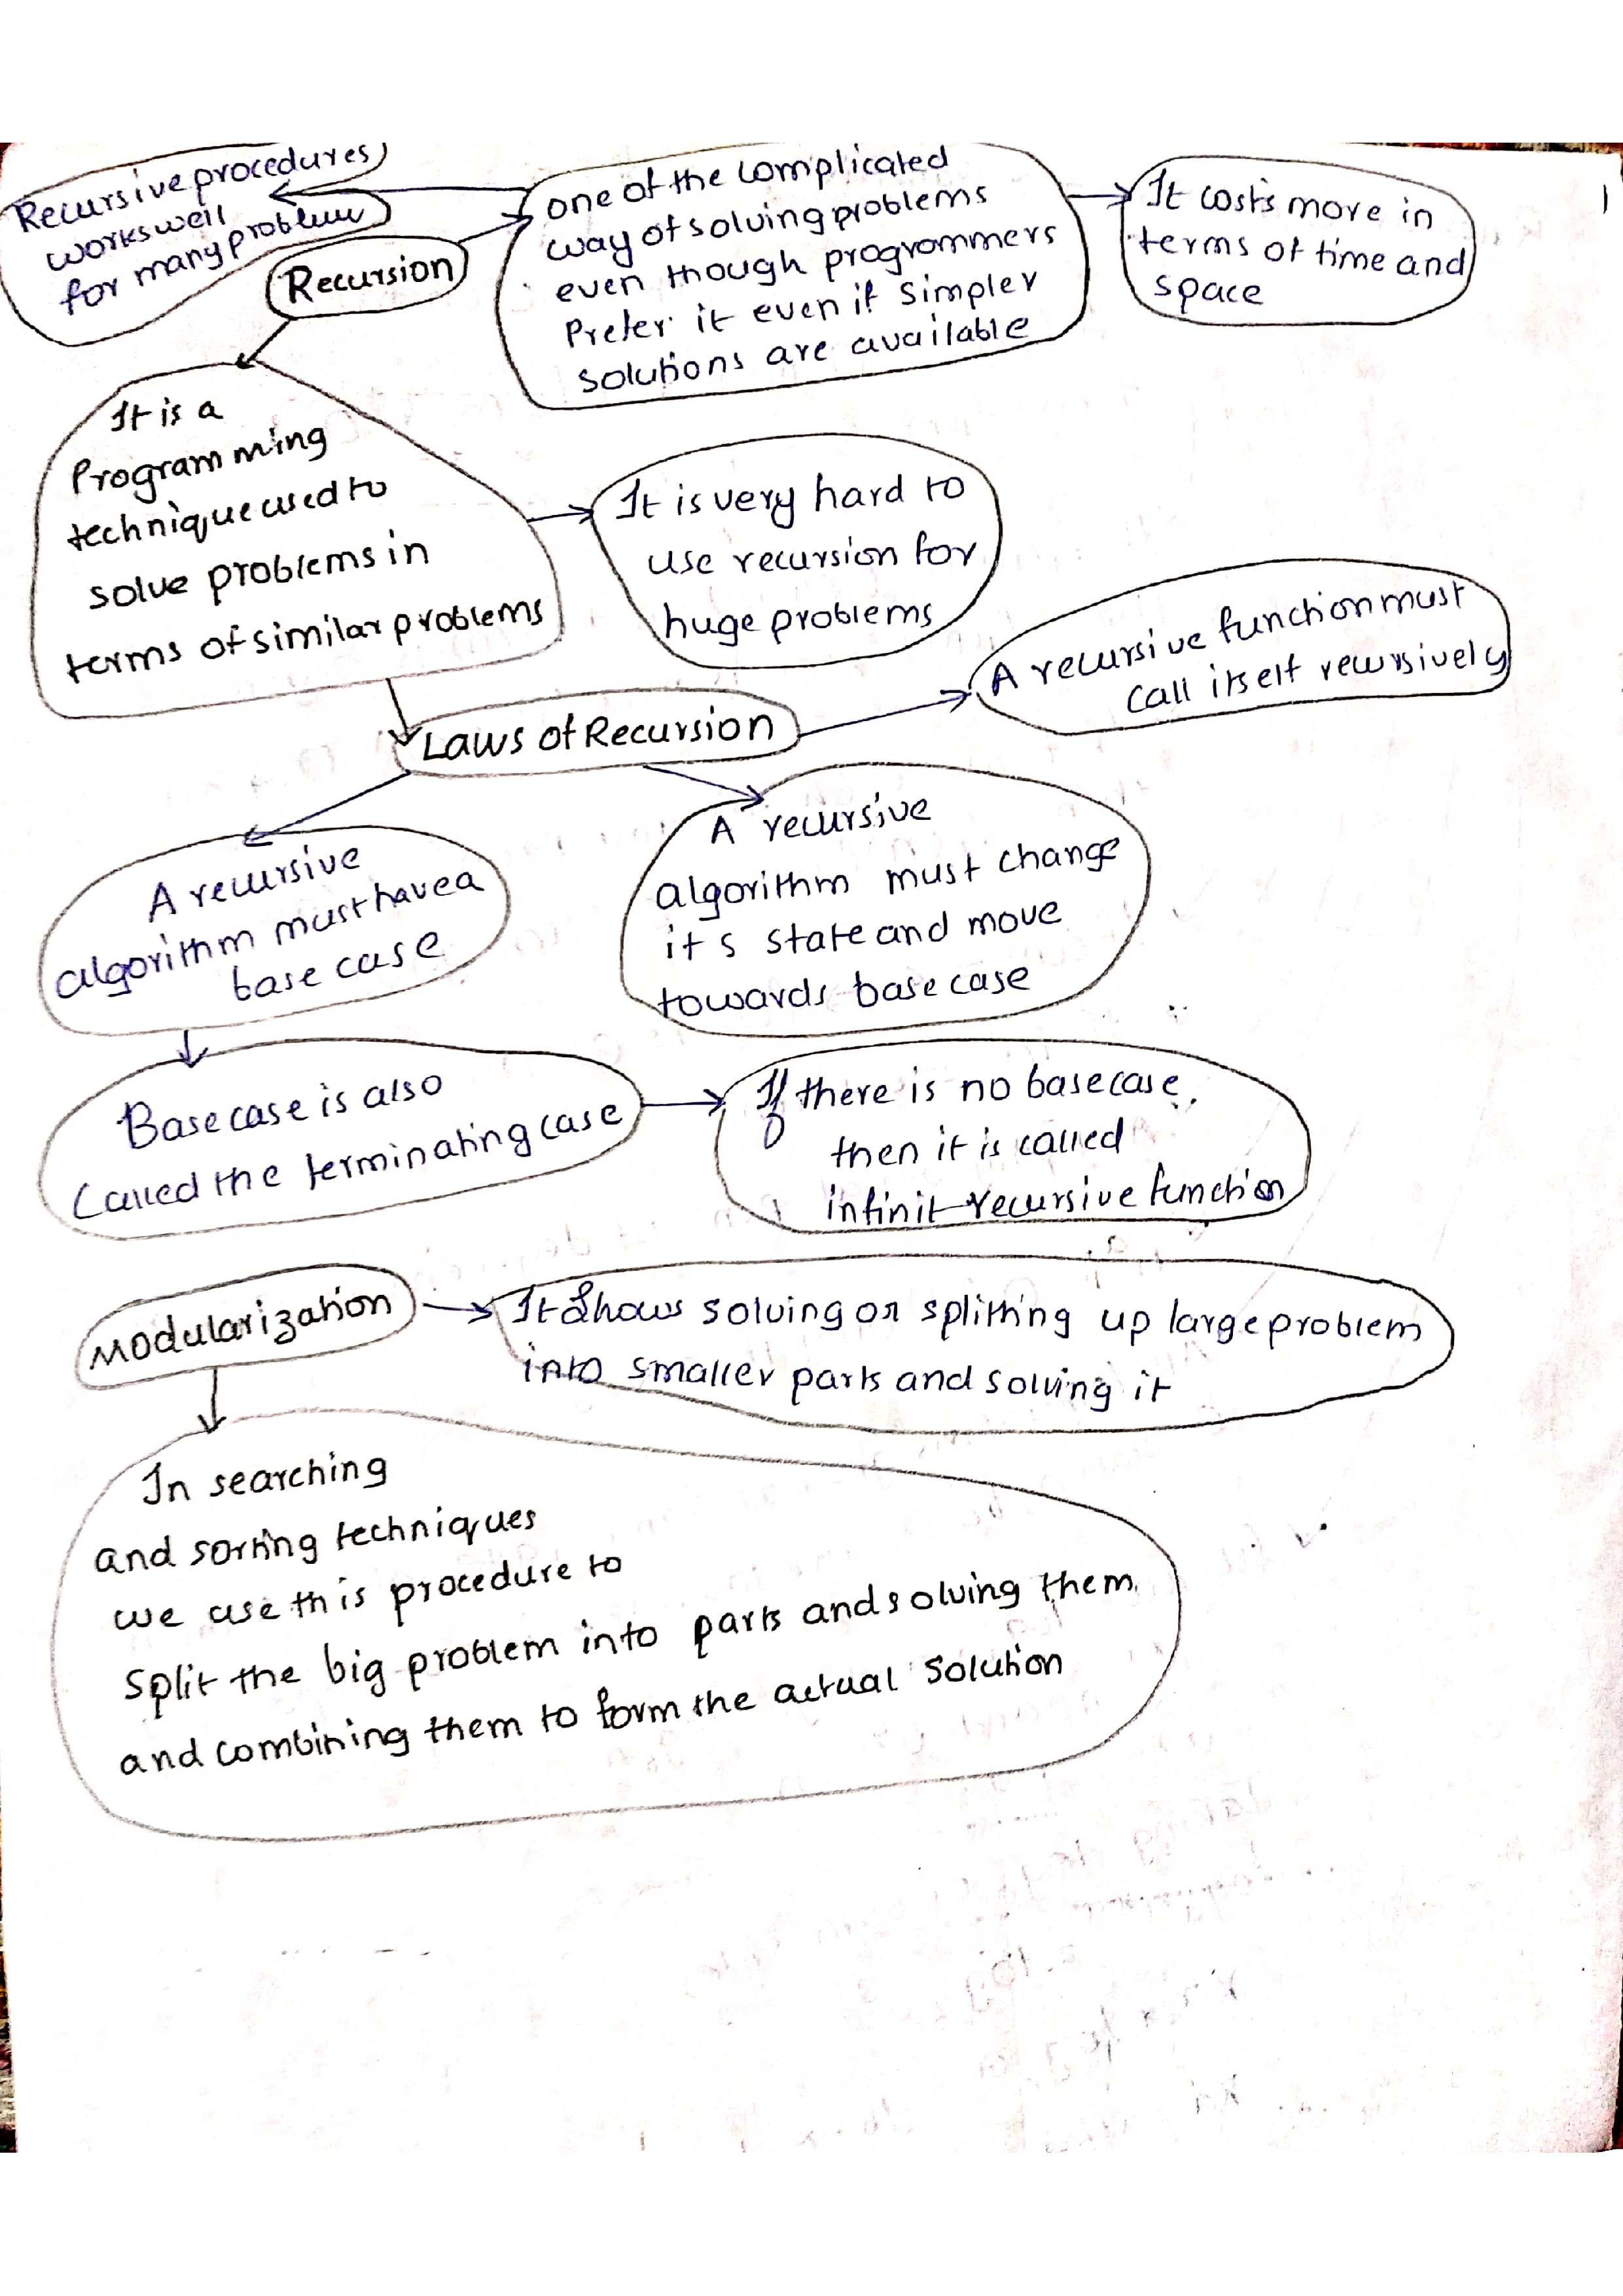 Recursive procedures
works well
for many problem
Recursion
one of the complicated
way of solving problems
even though programmers
Prefer it even if simpler
solutions are available
It costs more in
terms of time and
space
It is a
Programming
technique used to
solve problems in
terms of similar problems
It is very hard to
use recursion for
huge problems
A recursive function must
call itself recursively
Laws of Recursion
A recursive
algorithm must have a
base case
A recursive
algorithm must change
it s state and move
towards base case
Base case is also
Called the terminating case
If there is no base case,
then it is called
infinit recursive function
Modularization
It shows solving or splitting up large problem
into smaller parts and solving it
In searching
and sorting techniques
we use this procedure to
split the big problem into parts and solving them
and combining them to form the actual solution